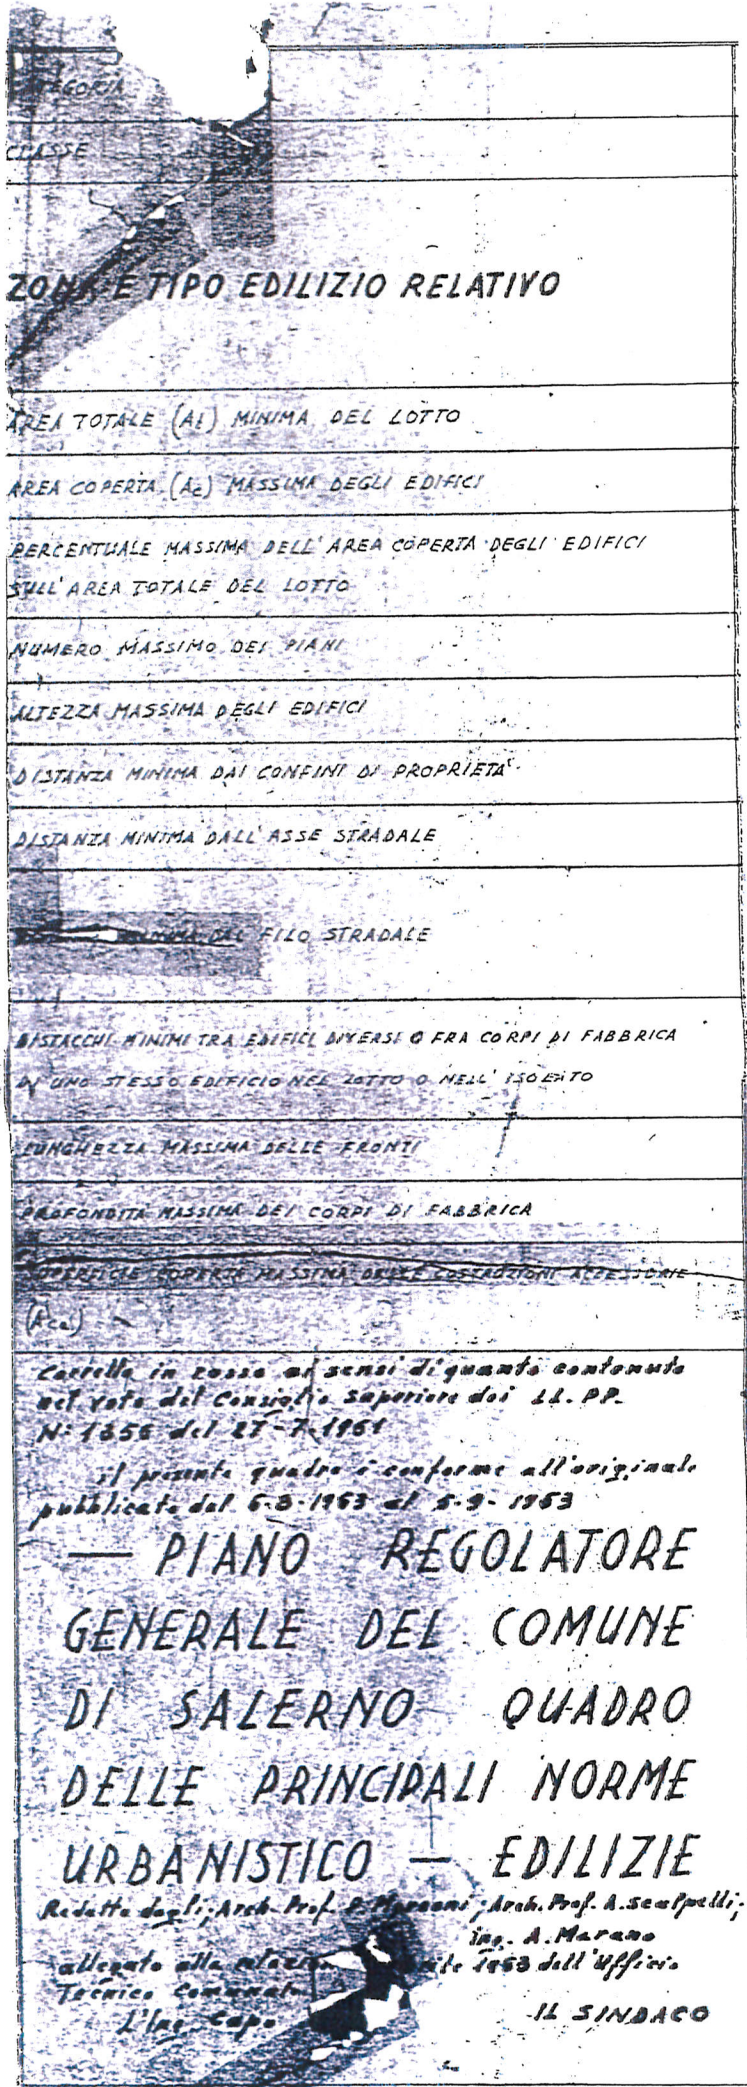 CATEGORIA
CLASSE
ZONA E TIPO EDILIZIO RELATIVO
AREA TOTALE (At) MINIMA DEL LOTTO
AREA COPERTA (Ac) MASSIMA DEGLI EDIFICI
PERCENTUALE MASSIMA DELL'AREA COPERTA DEGLI EDIFICI
SULL'AREA TOTALE DEL LOTTO
NUMERO MASSIMO DEI PIANI
ALTEZZA MASSIMA DEGLI EDIFICI
DISTANZA MINIMA DAI CONFINI DI PROPRIETA'
DISTANZA MINIMA DALL'ASSE STRADALE
MINIMA DAL FILO STRADALE
DISTACCHI MINIMI TRA EDIFICI DIVERSI O FRA CORPI DI FABBRICA
DI UNO STESSO EDIFICIO NEL LOTTO O NELL'ISOLATO
LUNGHEZZA MASSIMA DELLE FRONTI
PROFONDITA MASSIMA DEI CORPI DI FABBRICA
SUPERFICIE COPERTA MASSIMA DELLE COSTRUZIONI ACCESSORIE
(Aca)
in rosso ai sensi di quanto contenuto
nel voto del Consiglio Superiore dei LL.PP.
N: 1356 del 27-7-1961
il presente quadro è conforme all'originale
pubblicato dal 6-8-1963 al 5-9-1963
— PIANO REGOLATORE
GENERALE DEL COMUNE
DI SALERNO QUADRO
DELLE PRINCIPALI NORME
URBANISTICO — EDILIZIE
Redatto dagli; Arch. Prof. P. Marconi; Arch. Prof. A. Scalpelli;
ing. A. Marano
allegato alla relazione 1963 dell'Ufficio
Tecnico Comunale
L'Ing. Capo
IL SINDACO